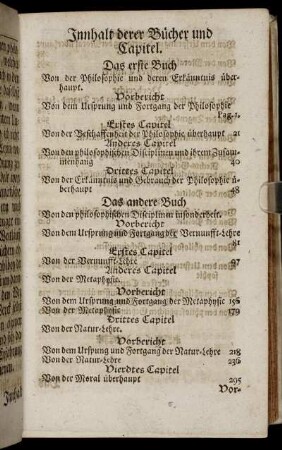 Innhalt derer Bücher und
Capitel.
Das erste Buch
Von der Philosophie und deren Erkänntnis über-
haupt.
Vorbericht
Von dem Ursprung und Fortgang der Philosophie
Pag. 1.
Erstes Capitel
Von der Beschaffenheit der Philosophie, überhaupt 21
Anderes Capitel
Von dem philosophischen Disciplinen und ihrem Zusam-
menhang 40
Drittes Capitel
Von der Erkänntnis und Gebrauch der Philosophie ü-
berhaupt 48
Das andere Buch
Von den philosophischen Disciplinen insonderheit.
Vorbericht
Von dem Ursprung und Fortgang der Vernunfft-Lehre
81
Erstes Capitel
Von der Vernunfft-Lehre 97
Anderes Capitel
Von der Metaphysic.
Vorbericht
Von dem Ursprung und Fortgang der Metaphysic 156
Von der Metaphysic 179
Drittes Capitel
Von der Natur-Lehre.
Vorbericht
Von dem Urspung und Fortgang der Natur-Lehre 218
Von der Natur-Lehre 236
Vierdtes Capitel
Von der Moral überhaupt 295
Vor-